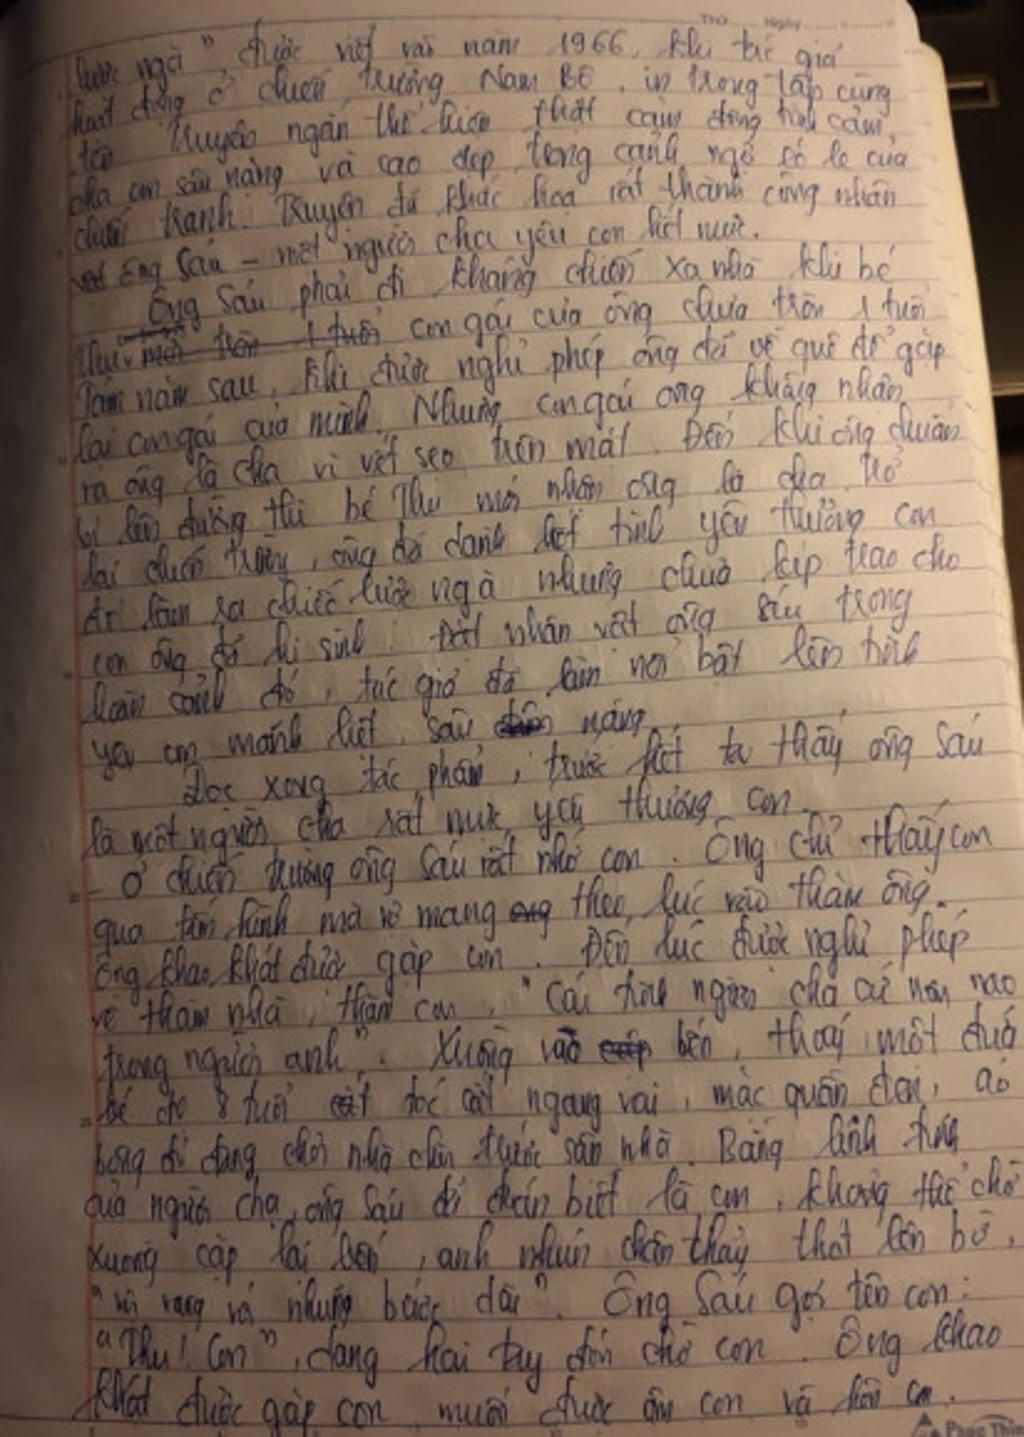 Thứ ..... Ngày .....
lược ngà" được viết vào năm 1966, khi tác giả
hoạt động ở chiến trường Nam Bộ, in trong tập cùng
tên. Truyện ngắn thể hiện thật cảm động tình cảm
cha con sâu nặng và cao đẹp trong cảnh ngộ éo le của
chiến tranh. Truyện đã khắc họa rất thành công nhân
vật ông Sáu - một người cha yêu con hết mực.
Ông Sáu phải đi kháng chiến xa nhà khi bé
Thu, con gái của ông chưa tròn 1 tuổi
Tám năm sau, khi được nghỉ phép ông đã về quê để gặp
lại con gái của mình. Nhưng con gái ông không nhận
ra ông là cha vì vết sẹo trên mặt. Đến khi ông chuẩn
bị lên đường thì bé Thu mới nhận ông là cha. Trở
lại chiến trường, ông đã dành hết tình yêu thương con
để làm ra chiếc lược ngà nhưng chưa kịp trao cho
con ông đã hi sinh. Đặt nhân vật ông Sáu trong
hoàn cảnh đó, tác giả đã làm nổi bật lên tình
yêu con mãnh liệt, sâu nặng
Đọc xong tác phẩm, trước hết ta thấy ông Sáu
là một người cha rất mực yêu thương con.
- Ở chiến trường ông Sáu rất nhớ con. Ông chỉ thấy con
qua tấm hình mà vợ mang theo lúc vào thăm ông.
Ông khao khát được gặp con. Đến lúc được nghỉ phép
về thăm nhà, thăm con, "Cái tình người cha cứ nôn nao
trong người anh". Xuồng vào bến, thấy một đứa
bé độ 8 tuổi tóc cắt ngang vai, mặc quần đen, áo
bông đỏ đang chơi nhà chòi trước sân nhà. Bằng linh tính
của người cha, ông Sáu đã đoán biết là con, không thể chờ
xuồng cập lại bến, anh nhún chân thảy thót lên bờ,
"vội vàng với những bước dài". Ông Sáu gọi tên con:
"Thu! Con", dang hai tay đón chờ con. Ông khao
khát được gặp con, muốn được ôm con và hôn con.